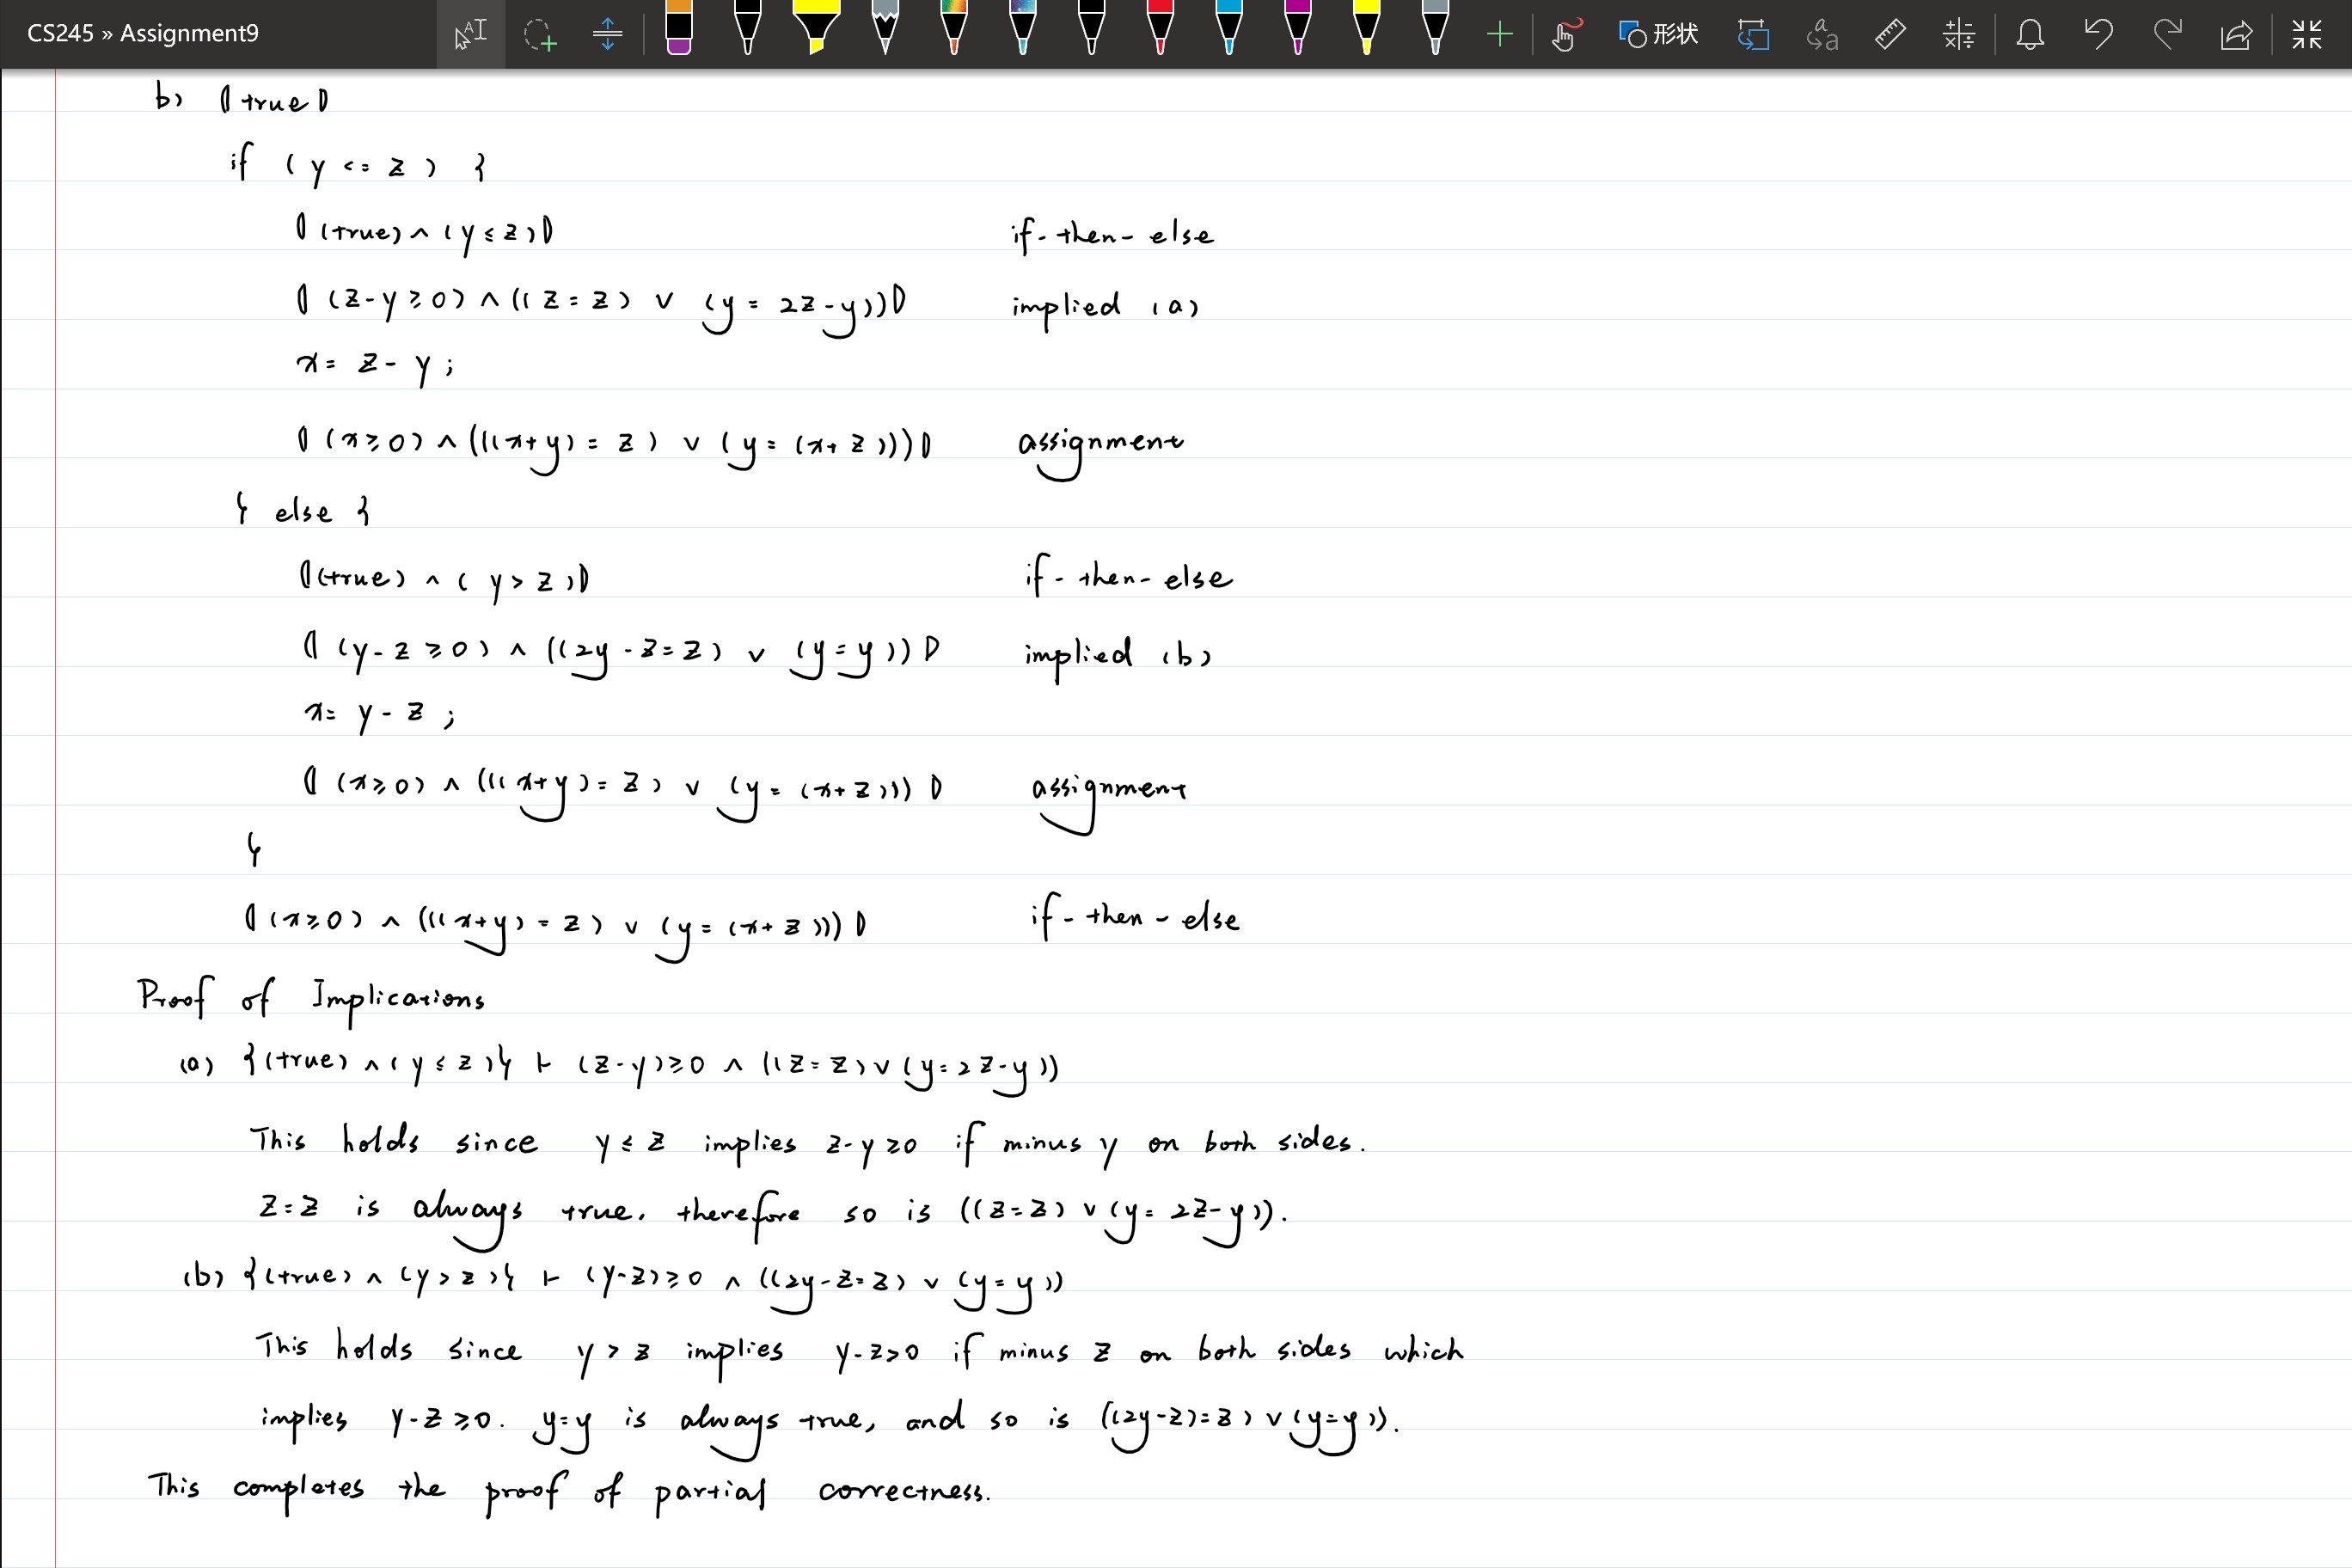 CS245 » Assignment9
形状
b) ⦇true⦈
if (y <= z) {
⦇(true) ∧ (y ≤ z)⦈ if-then-else
⦇(z-y ≥ 0) ∧ ((z = z) ∨ (y = 2z-y))⦈ implied (a)
x = z - y ;
⦇(x ≥ 0) ∧ (((x+y) = z) ∨ (y = (x+z)))⦈ assignment
} else {
⦇(true) ∧ (y > z)⦈ if-then-else
⦇(y-z ≥ 0) ∧ ((2y-z = z) ∨ (y = y))⦈ implied (b)
x = y - z ;
⦇(x ≥ 0) ∧ (((x+y) = z) ∨ (y = (x+z)))⦈ assignment
}
⦇(x ≥ 0) ∧ (((x+y) = z) ∨ (y = (x+z)))⦈ if-then-else
Proof of Implications
(a) {(true) ∧ (y ≤ z)} ⊢ (z-y) ≥ 0 ∧ ((z = z) ∨ (y = 2z-y))
This holds since y ≤ z implies z-y ≥ 0 if minus y on both sides.
z = z is always true, therefore so is ((z = z) ∨ (y = 2z-y)).
(b) {(true) ∧ (y > z)} ⊢ (y-z) ≥ 0 ∧ ((2y-z = z) ∨ (y = y))
This holds since y > z implies y-z > 0 if minus z on both sides which
implies y-z ≥ 0. y = y is always true, and so is ((2y-z) = z) ∨ (y = y)).
This completes the proof of partial correctness.